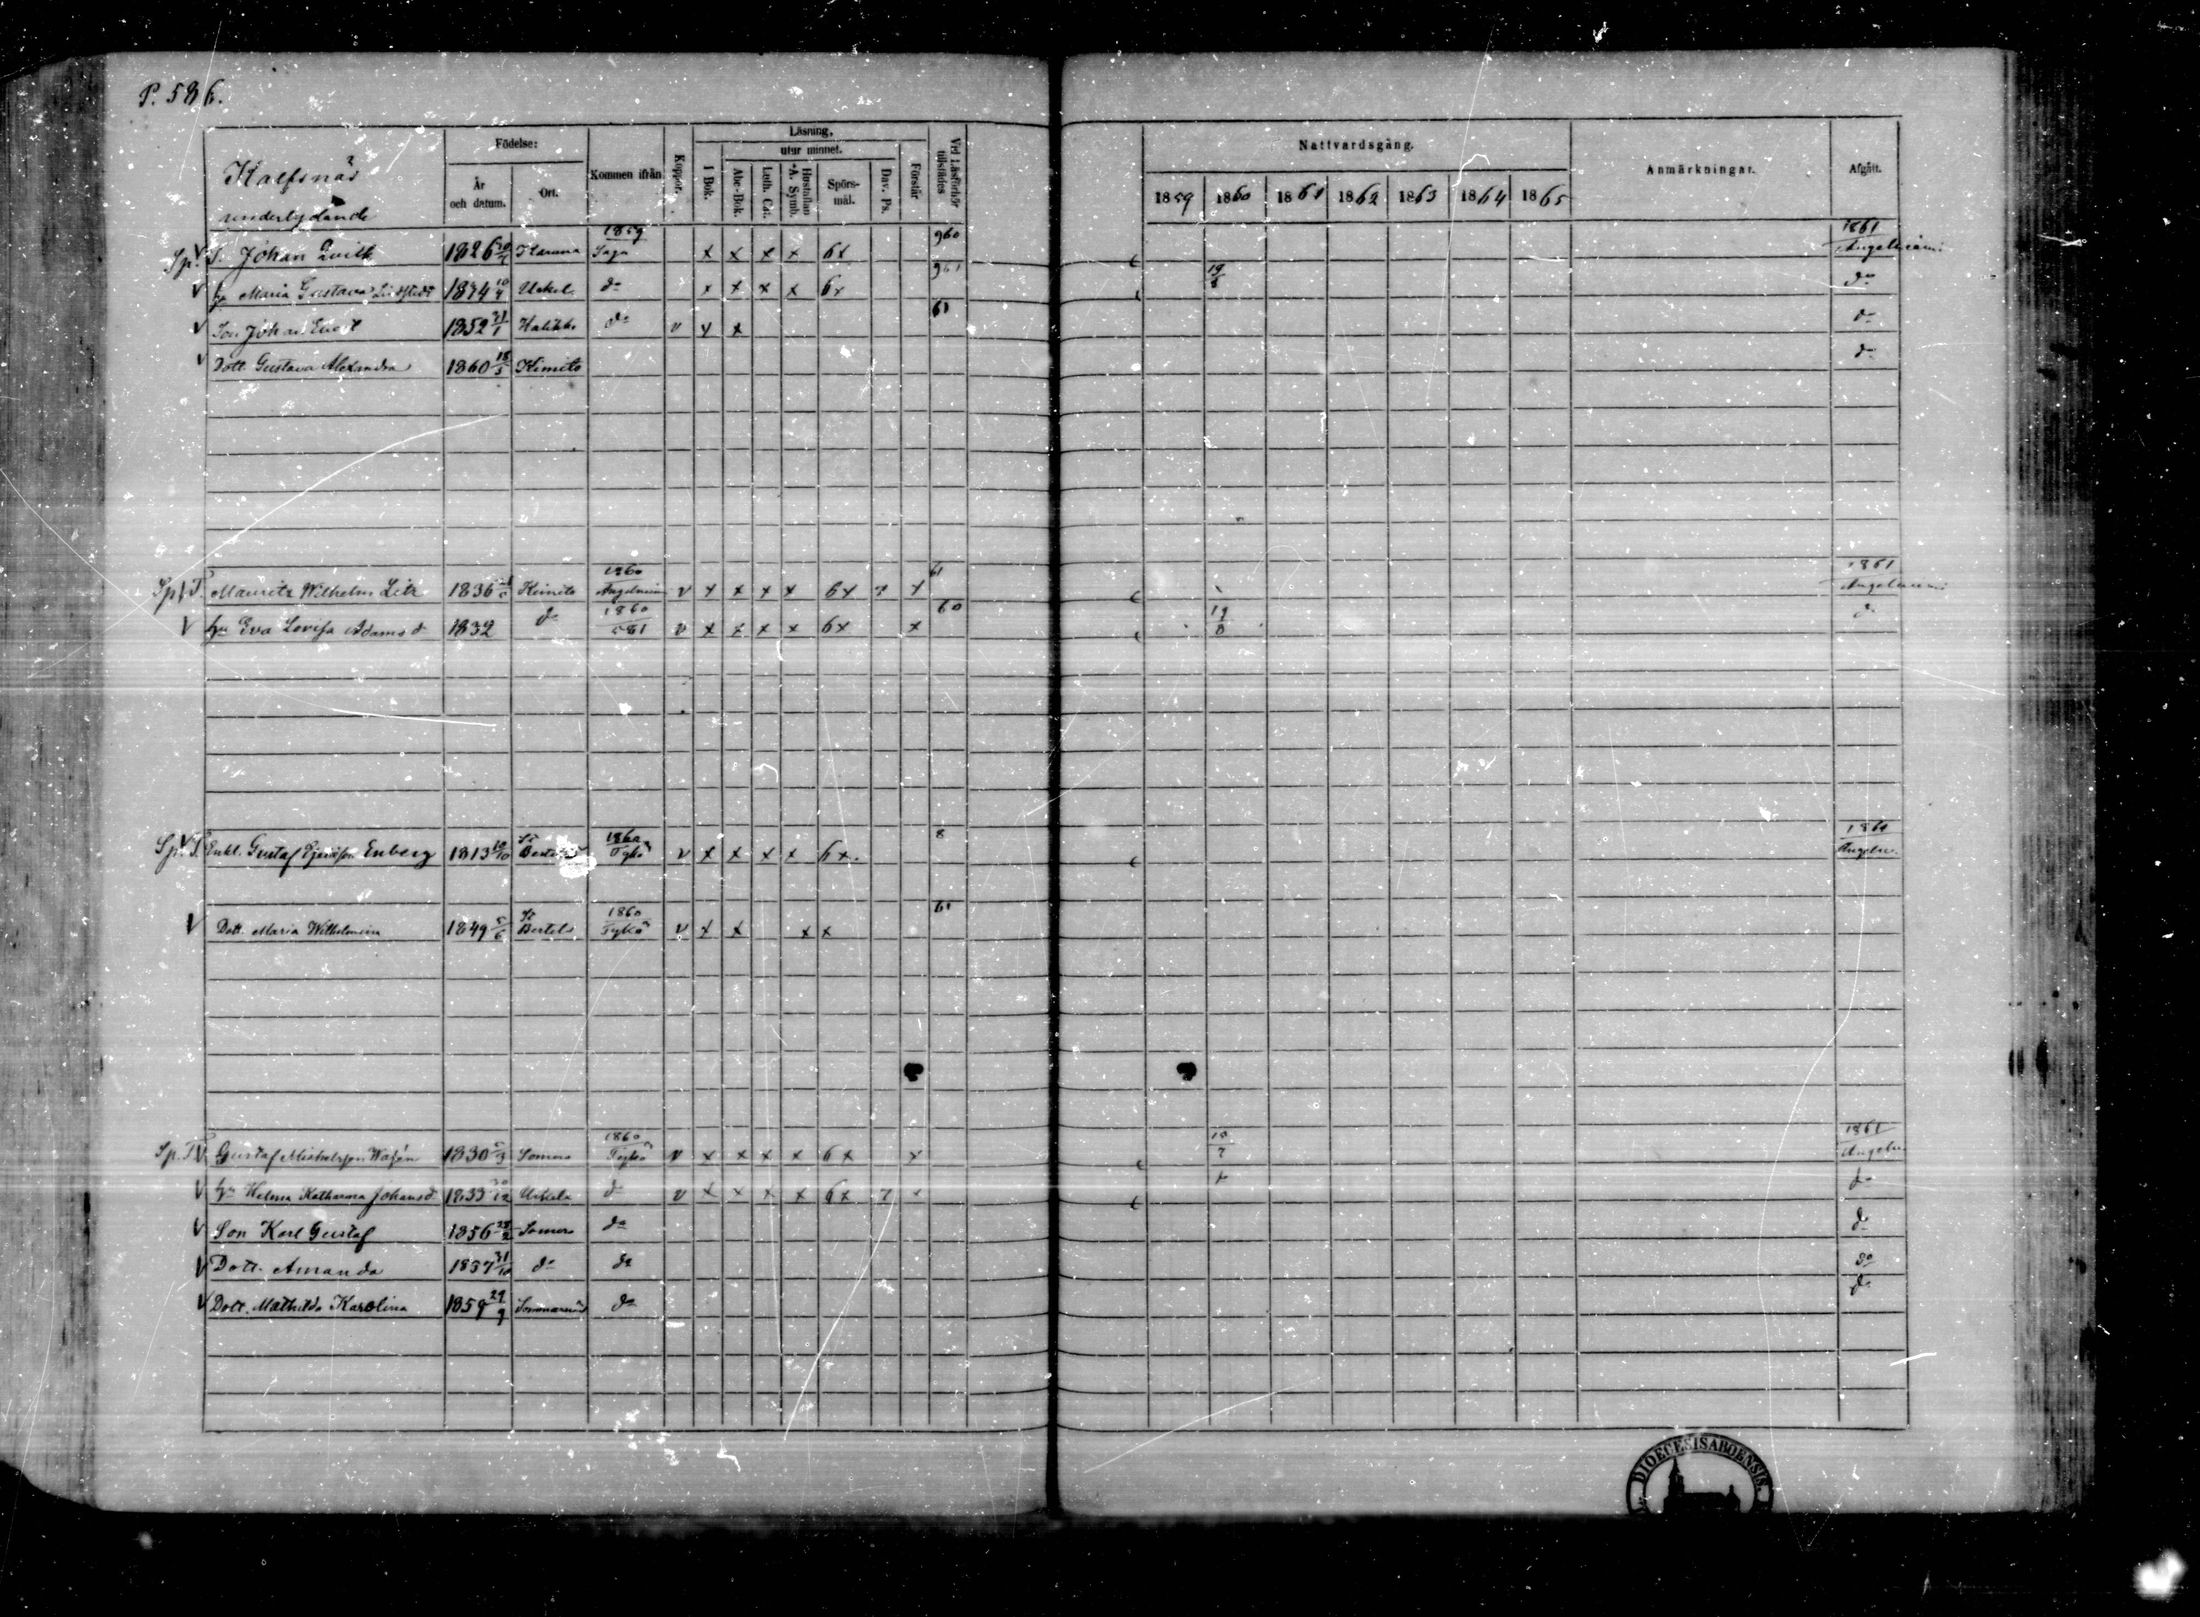 P. 586.
Kalfsnäs
underlydande
Födelse:
År och datum.
Ort.
Kommen ifrån
Koppor.
Läsning.
utur minnet.
I Bok.
Abc-Bok.
Luth. Cat.
Hustaflan A. Symb.
Spörs-mål.
Dav. Ps.
Förstår
Vid Läsförhör tillstädes
Nattvardsgång.
1859 1860 1861 1862 1863 1864 1865
Anmärkningar.
Afgått.
Sp. T. Johan Qvick 1826 Karuna 1859 x x x x 6x 960 1861 Angelniemi
hu Maria Gustava 10/4 Uskel. do x x x x 6x 961 19/8 do
Son Johan 1852 Halikko do v x x 61 do
Dott. Gustava Alexandra 1860 18/5 Kimito do
Sp. T. Mauritz Wilhelm 1836 Kimito 1860 Angelniemi v x x x x 6x x 61 1861 Angelniemi
hu Eva Lovisa Adamsd 1832 do 1860 581 v x x x x 6x x 60 19/8 do
Sp. T. Enkl. Gustaf Enberg 1813 19/10 St Bertels 1860 Tykö v x x x x 6x. 8 1861 Angeln.
Dott. Maria Wilhelmina 1849 5/6 St Bertels 1860 Tykö v x x x x 61
Sp. T. Gustaf Michelsson 1830 5/3 Somero 1860 Tykö v x x x x 6x x 1861 Angeln
hu Helena Katharina Johansd 1833 Uskela do v x x x x 6x x do
Son Karl Gustaf 1856 28/2 Somero do do
Dott. Amanda 1857 31/10 do do do
Dott. Mathilda Karolina 1859 29/9 Sommarnäs do do
DIOECESIS ABOENSIS.